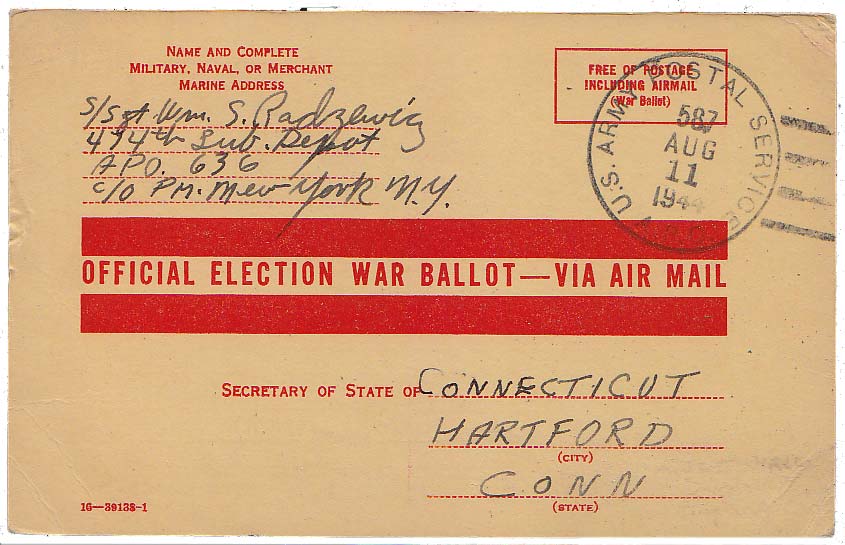 NAME AND COMPLETE
MILITARY, NAVAL, OR MERCHANT
MARINE ADDRESS
S/Sgt. Wm. S. Radzewicz
494th Sub. Depot
APO. 636
c/o PM. New York N.Y.
FREE OF POSTAGE
INCLUDING AIRMAIL
(War Ballot)
U.S. ARMY POSTAL SERVICE
587
AUG
11
1944
A.P.O.
OFFICIAL ELECTION WAR BALLOT—VIA AIR MAIL
SECRETARY OF STATE OF CONNECTICUT
HARTFORD
(CITY)
CONN
(STATE)
16—39138-1